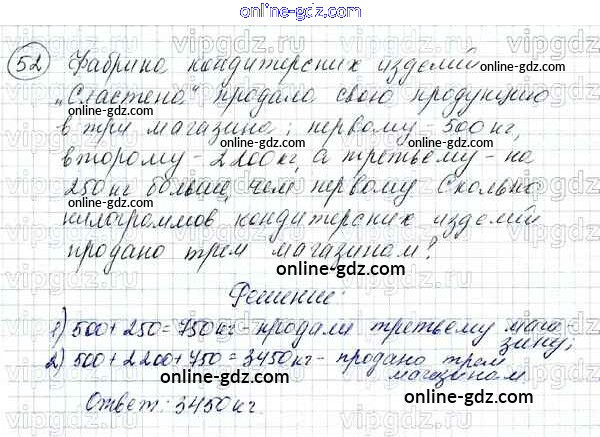 online-gdz.com
52 Фабрика кондитерских изделий
online-gdz.com
„Сластена" продала свою продукцию
в три магазина; первому - 500 кг,
второму - 2200 кг, а третьему - на
250 кг больше, чем первому. Сколько
online-gdz.com
килограммов кондитерских изделий
продано трем магазинам?
online-gdz.com
online-gdz.com
Решение:
1) 500 + 250 = 750 кг - продали третьему мага-
зину;
online-gdz.com
2) 500 + 2200 + 750 = 3450 кг - продано трем
магазинам
online-gdz.com
online-gdz.com
Ответ: 3450 кг.
online-gdz.com